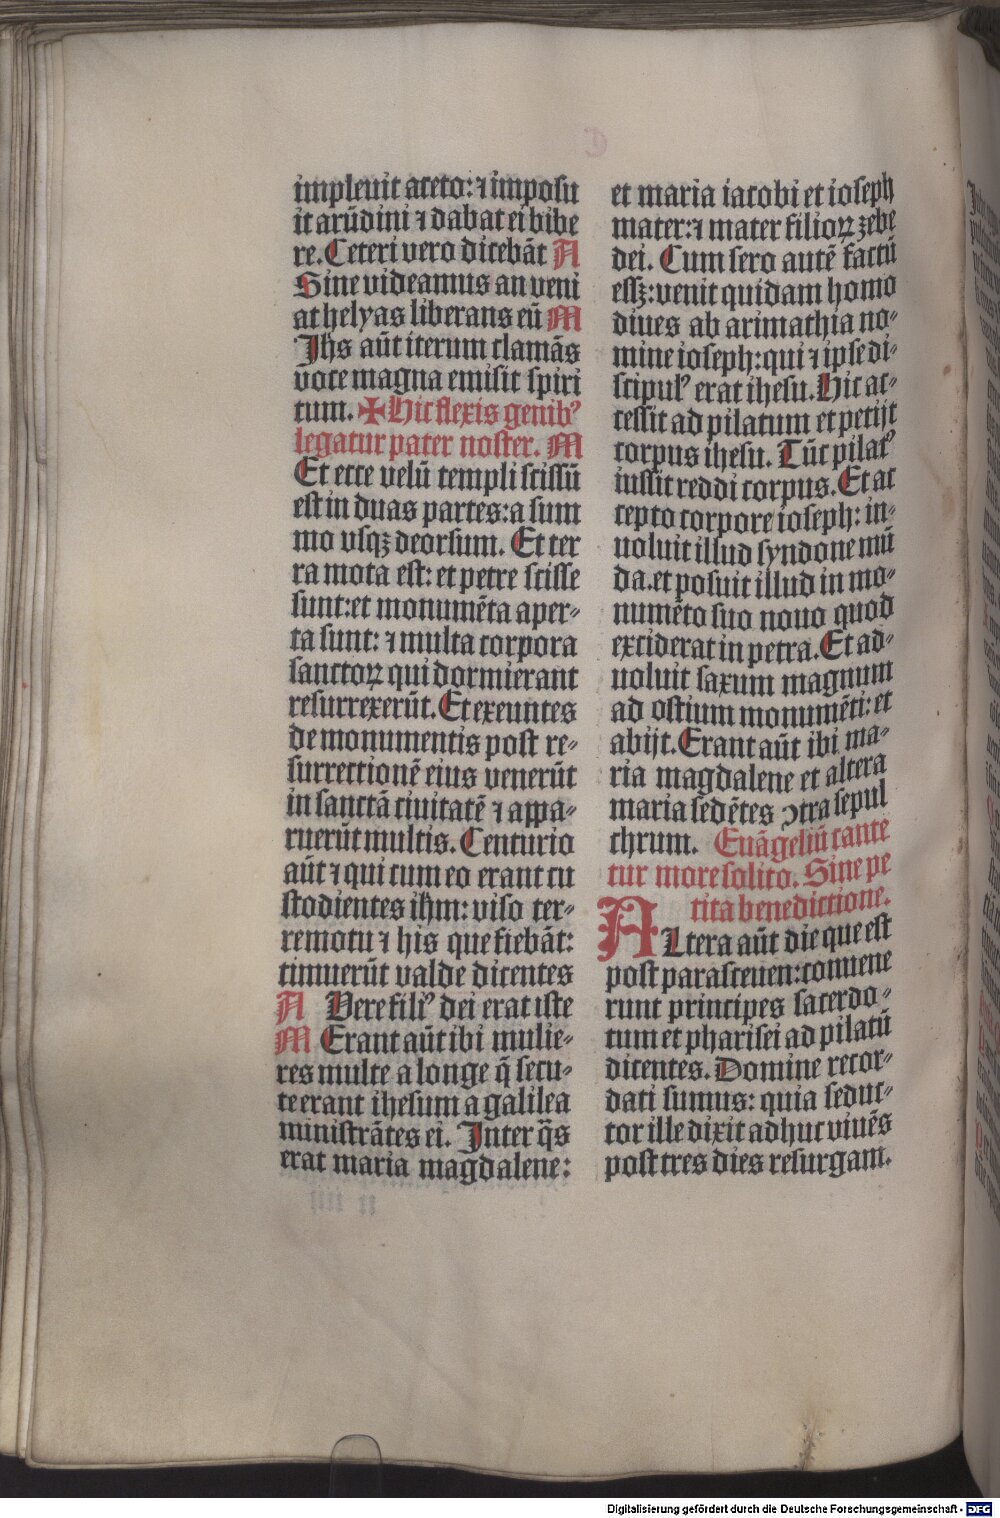 impleuit aceto: ⁊ imposu
it arūdini ⁊ dabat ei bibe
re. Ceteri vero dicebāt A
Sine videamus an veni
at helyas liberans eū M
Jhs aūt iterum clamās
voce magna emisit spiri
tum. ✠ Hic flexis genibꝰ
legatur pater noster. M
Et ecce velū templi scissū
est in duas partes: a sum
mo vsqꝫ deorsum. Et ter
ra mota est: et petre scisse
sunt: et monumēta aper-
ta sunt: ⁊ multa corpora
sanctoꝝ qui dormierant
resurrexerūt. Et exeuntes
de monumentis post re-
surrectionē eius venerūt
in sanctā ciuitatē ⁊ appa-
ruerūt multis. Centurio
aūt ⁊ qui cum eo erant cu
stodientes ihm: viso ter-
remotu ⁊ his que fiebāt:
timuerūt valde dicentes
A Vere filiꝰ dei erat iste
M Erant aūt ibi mulie-
res multe a longe q̄ secu-
te erant ihesum a galilea
ministrātes ei. Inter q̄s
erat maria magdalene:
et maria iacobi et ioseph
mater: ⁊ mater filioꝝ zebe
dei. Cum sero autē factū
essꝫ: venit quidam homo
diues ab arimathia no-
mine ioseph: qui ⁊ ipse di-
scipulꝰ erat ihesu. Hic ac-
cessit ad pilatum et petijt
corpus ihesu. Tūc pilatꝰ
iussit reddi corpus. Et ac
cepto corpore ioseph: in-
uoluit illud syndone mū
da. et posuit illud in mo-
numēto suo nouo quod
exciderat in petra. Et ad-
uoluit saxum magnum
ad ostium monumēti: et
abijt. Erant aūt ibi ma-
ria magdalene et altera
maria sedētes ꝯtra sepul
chrum. Euāgeliū cante
tur more solito. Sine pe
tita benedictione.
ALtera aūt die que est
post parasceuen: conuene
runt principes sacerdo-
tum et pharisei ad pilatū
dicentes. Domine recor-
dati sumus: quia seduc-
tor ille dixit adhuc viuēs
post tres dies resurgam.
Digitalisierung gefördert durch die Deutsche Forschungsgemeinschaft - DFG